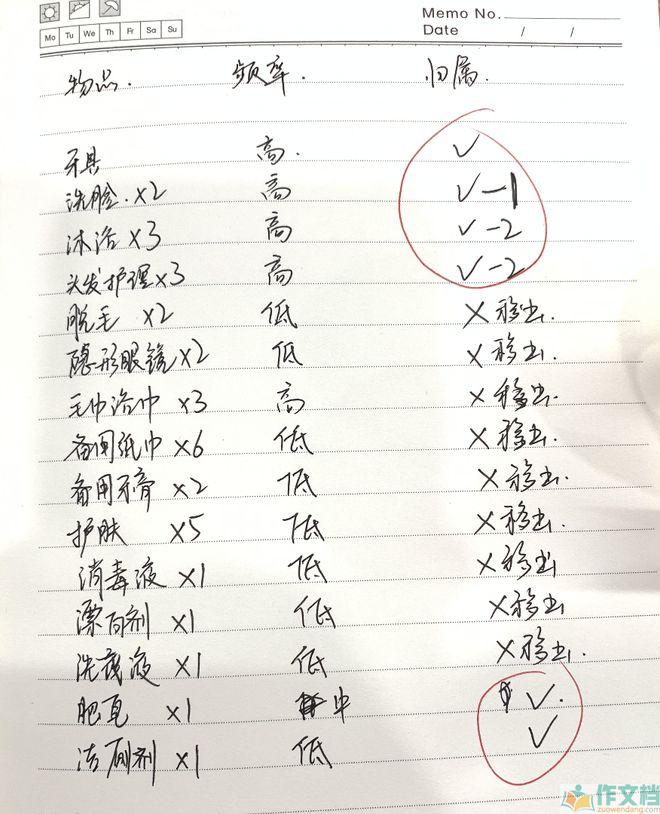 Memo No.
Mo Tu We Th Fr Sa Su
Date / /
物品. 频率. 归属.
牙具 高. ✓
洗脸.×2 高 ✓-1
沐浴×3 高 ✓-2
头发护理×3 高 ✓-2
脱毛 ×2 低 ×移出.
隐形眼镜×2 低 ×移出.
毛巾浴巾 ×3 高 ×移出.
备用纸巾×6 低 ×移出.
备用牙膏×2 低 ×移出.
护肤 ×5 低 ×移出.
消毒液×1 低 ×移出
漂白剂 ×1 低 ×移出
洗衣液×1 低 ×移出.
肥皂 ×1 中 ✓.
洁厕剂×1 低 ✓
作文档
zuowendang.com